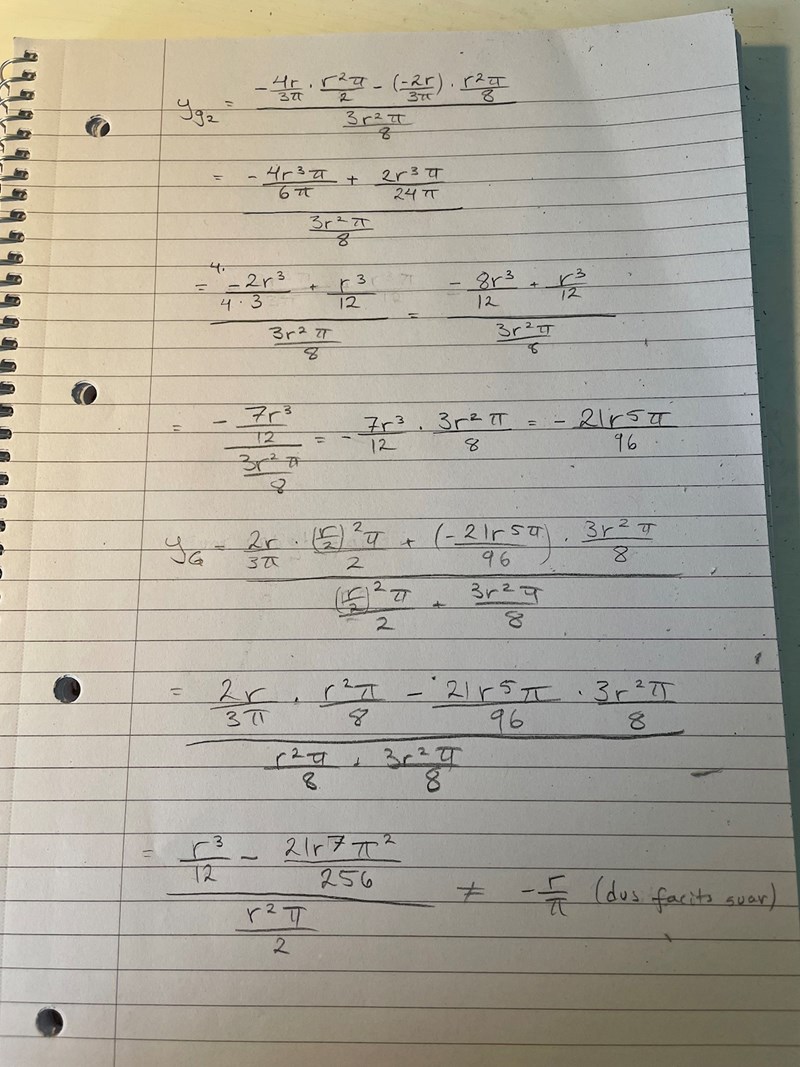 y_{g2} = \frac{-\frac{4r}{3π} · \frac{r²π}{2} - (\frac{-2r}{3π}) · \frac{r²π}{8}}{\frac{3r²π}{8}}
= \frac{-\frac{4r³π}{6π} + \frac{2r³π}{24π}}{\frac{3r²π}{8}}
= \frac{\frac{4· -2r³}{4·3} + \frac{r³}{12}}{\frac{3r²π}{8}} = \frac{-\frac{8r³}{12} + \frac{r³}{12}}{\frac{3r²π}{8}}
= \frac{-\frac{7r³}{12}}{\frac{3r²π}{8}} = -\frac{7r³}{12} · \frac{3r²π}{8} = -\frac{21r⁵π}{96}
y_G = \frac{\frac{2r}{3π} · \frac{(\frac{r}{2})²π}{2} + (-\frac{21r⁵π}{96}) · \frac{3r²π}{8}}{\frac{(\frac{r}{2})²π}{2} + \frac{3r²π}{8}}
= \frac{\frac{2r}{3π} · \frac{r²π}{8} - \frac{21r⁵π}{96} · \frac{3r²π}{8}}{\frac{r²π}{8} + \frac{3r²π}{8}}
= \frac{\frac{r³}{12} - \frac{21r⁷π²}{256}}{\frac{r²π}{2}} ≠ -\frac{r}{π} (dvs facits svar)